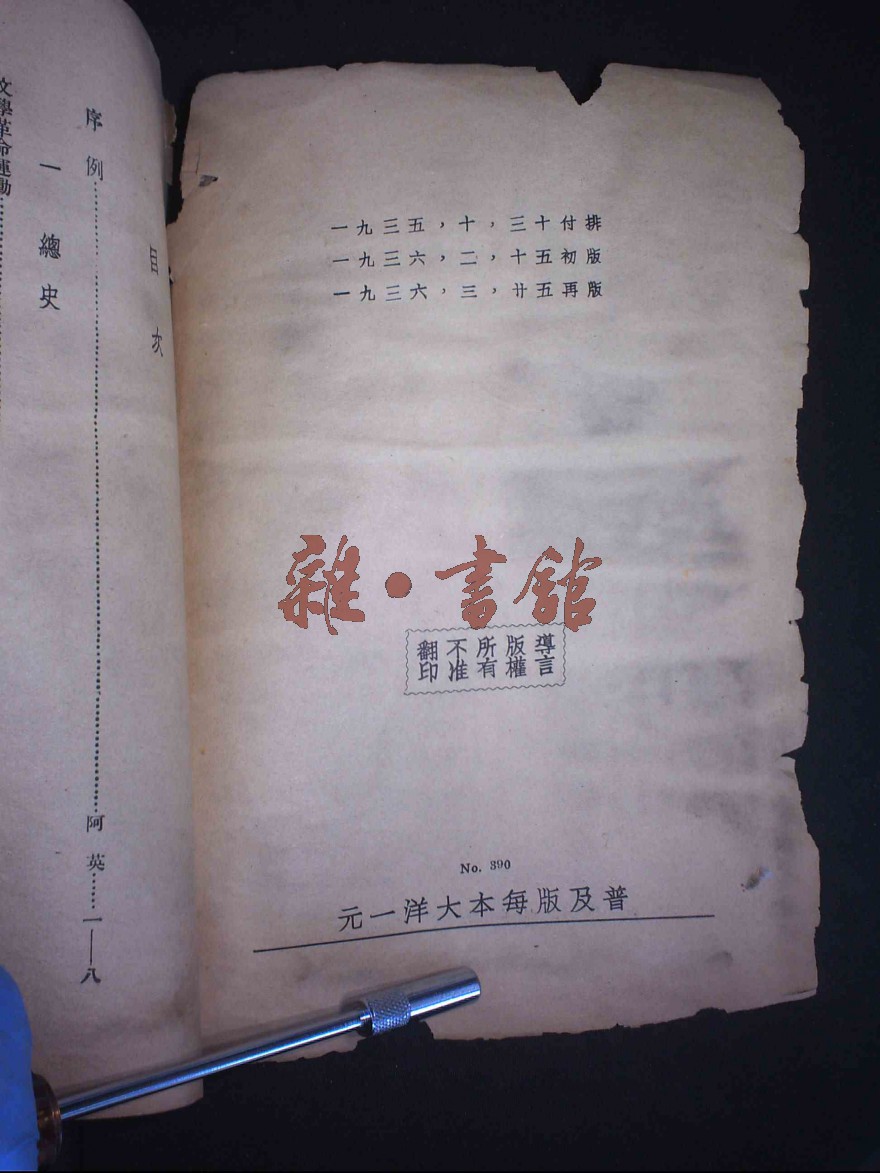 一九三五，十，三十付排
一九三六，二，十五初版
一九三六，三，廿五再版
雜•書館
導言
版權
所有
不准
翻印
No. 390
普及版每本大洋一元
目次
序例……阿英……一——八
一 總史
文學革命運動……